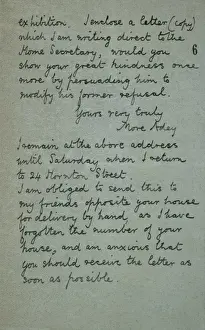 exhibition. I enclose a letter (copy)
which I am writing direct to the
Home Secretary, would you
6
show your great kindness once
more by persuading him to
modify his former refusal.
Yours very truly
More Adey
I remain at the above address
until Saturday when I return
to 24 Hornton Street.
I am obliged to send this to
my friends opposite your house
for delivery by hand, as I have
forgotten the number of your
house, and am anxious that
you should receive the letter as
soon as possible.